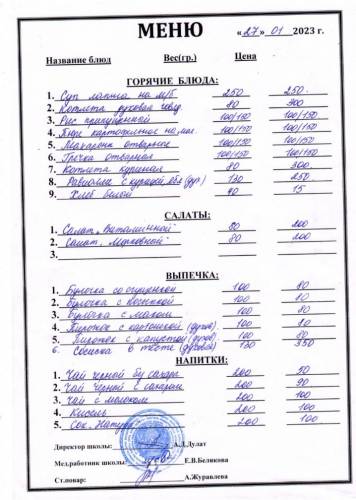 МЕНЮ «27» 01 2023 г.
Название блюд Вес(гр.) Цена
ГОРЯЧИЕ БЛЮДА:
1. Суп лапша на м/б 250 250
2. Котлета рубовая 80 300
3. Рис припущенный 100/150 100/150
4. Пюре картофельное на мол. 100/150 100/150
5. Макароны отварные 100/150 100/150
6. Гречка отварная 100/150 100/150
7. Котлета куриная 80 300
8. Равиолли с курицей, 130 250
9. Хлеб белый 40 15
САЛАТЫ:
1. Салат „Витаминный" 80 200
2. Салат „Морковный" 80 200
3.
ВЫПЕЧКА:
1. Булочка со сгущенкой 100 80
2. Булочка с 100 80
3. Булочка с маком 100 80
4. Пирожок с картошкой (духов.) 100 80
5. Пирожок с капустой (духов) 100 80
6. Сосиска в тесте (духовая) 130 350
НАПИТКИ:
1. Чай черный б/у сахара 200 50
2. Чай черный с сахаром 200 90
3. Чай с молоком 200 100
4. Кисель 200 100
5. Сок 200 100
Директор школы: А.Д.Дулат
Мед.работник школы: Е.В.Беликова
Ст.повар: А.Журавлева